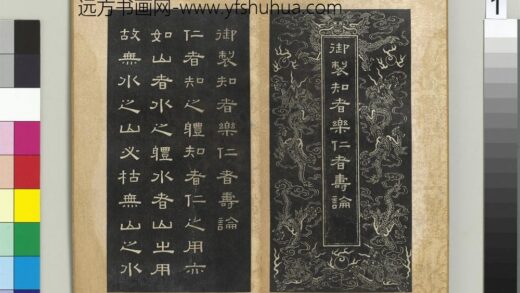 远方书画网-www.yfshuhua.com
1
御製知者樂仁者壽論
御製知者樂仁者壽論
仁者知之體知者仁之用亦
如山者水之體水者山之用
故無水之山必枯無山之水